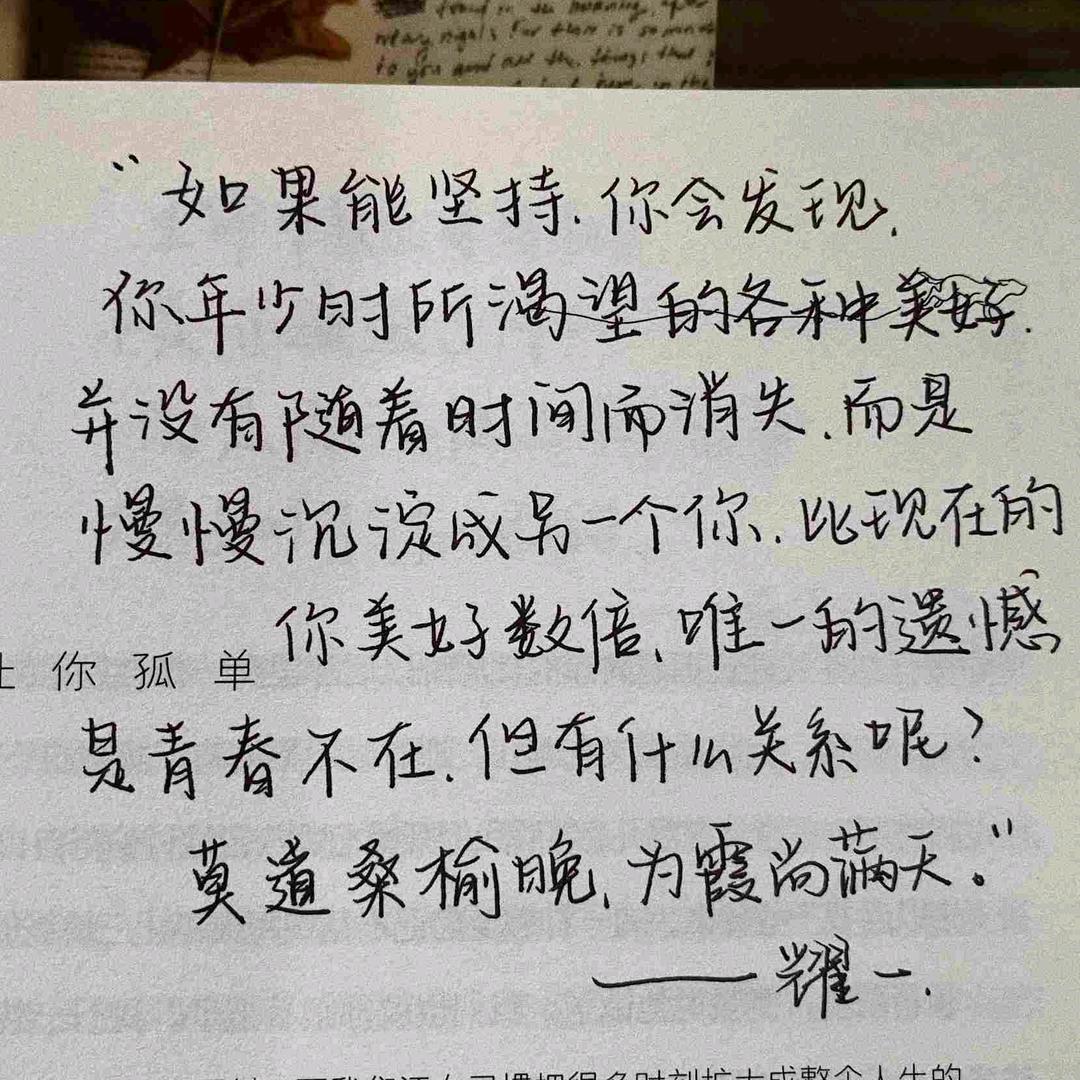 found in the morning, after
to you and all the things that
“如果能坚持.你会发现.
你年少时所渴望的各种美好.
并没有随着时间而消失.而是
慢慢沉淀成另一个你.比现在的
你美好数倍.唯一的遗憾
让你孤单
是青春不在.但有什么关系呢?
莫道桑榆晚,为霞尚满天。”
——耀一.